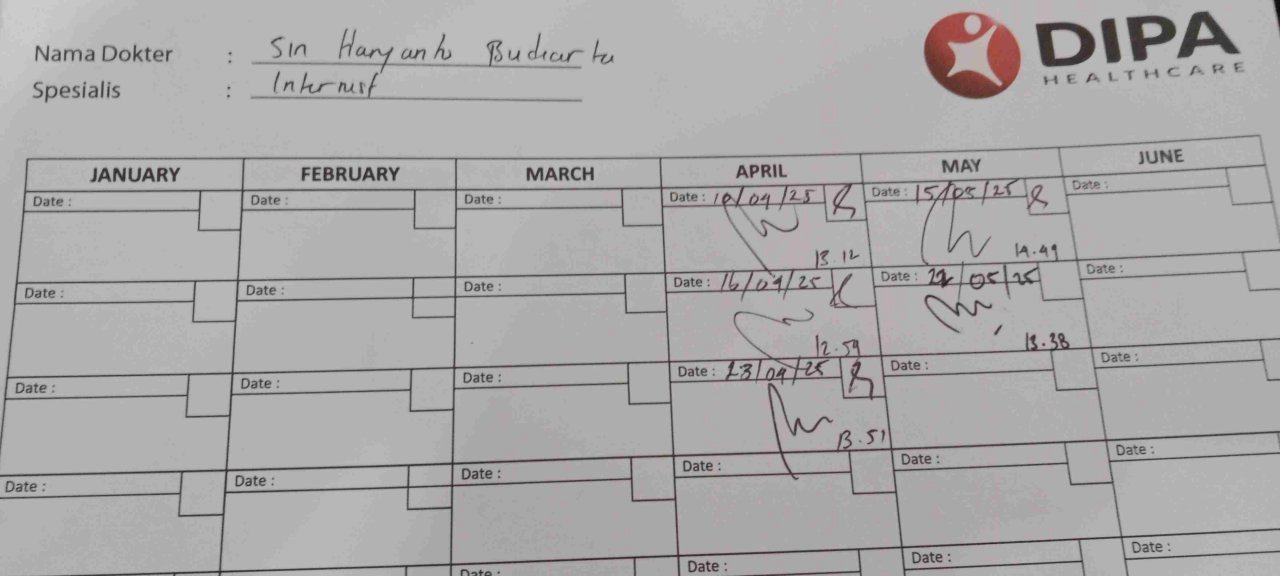 Nama Dokter : Sin Haryanto Budiarta
DIPA
HEALTHCARE
Spesialis : Internist
JANUARY FEBRUARY MARCH APRIL MAY JUNE
Date : Date : Date : Date : 10/04/25 Date : 15/05/25 Date :
13.12 14.49
Date : Date : Date : Date : 16/04/25 Date : 22/05/25 Date :
12.59 13.38
Date : Date : Date : Date : 23/04/25 Date : Date :
13.51
Date : Date : Date : Date : Date : Date :
Date : Date : Date : Date :